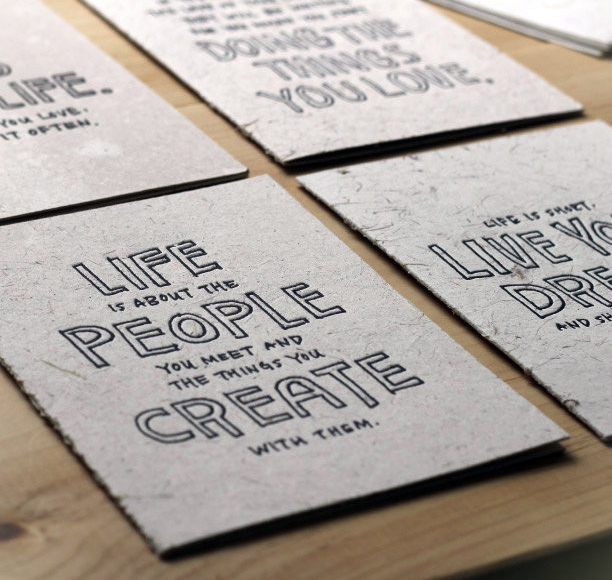 LIFE.
YOU LOVE,
IT OFTEN.
DOING THE
THINGS
YOU LOVE.
LIFE
IS ABOUT THE
PEOPLE
YOU MEET AND
THE THINGS YOU
CREATE
WITH THEM.
LIFE IS SHORT.
LIVE YO
DRE
AND SH